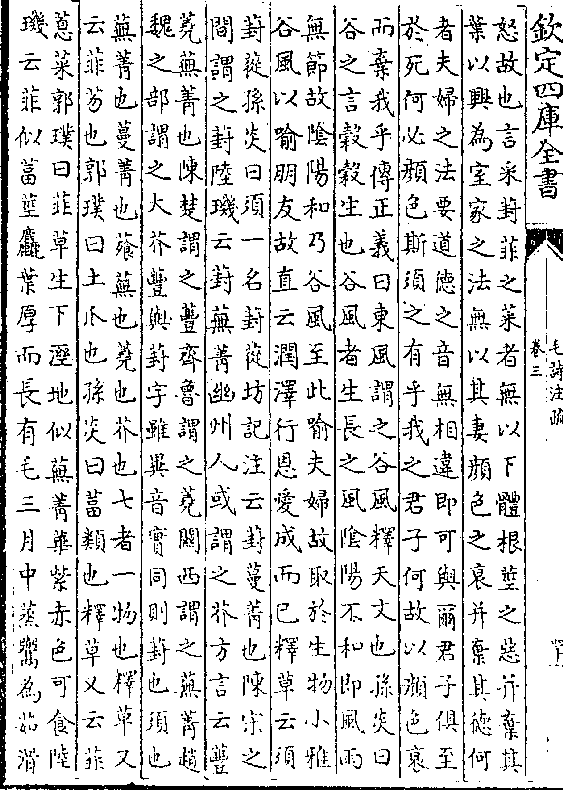 欽定四庫全書
毛詩注疏
卷三
怒故也言采葑菲之菜者無以下體根莖之惡并棄其
葉以興為室家之法無以其妻顔色之衰并棄其德何
者夫婦之法要道德之音無相違即可與爾君子俱至
於死何必顔色斯須之有乎我之君子何故以顔色衰
而棄我乎傳正義曰東風謂之谷風釋天文也孫炎曰
谷之言穀穀生也谷風者生長之風陰陽不和即風雨
無節故陰陽和乃谷風至此喻夫婦故取於生物小雅
谷風以喻朋友故直云潤澤行恩愛成而已釋草云須
葑蓯孫炎曰須一名葑蓯坊記注云葑蔓菁也陳宋之
間謂之葑陸璣云葑蕪菁幽州人或謂之芥方言云蘴
蕘蕪菁也陳楚謂之蘴齊魯謂之蕘關西謂之蕪菁趙
魏之部謂之大芥蘴與葑字雖異音實同則葑也須也
蕪菁也蔓菁也薞蕪也蕘也芥也七者一物也釋草又
云菲芴也郭璞曰土瓜也孫炎曰葍類也釋草又云菲
蒠菜郭璞曰菲草生下溼地似蕪菁華紫赤色可食陸
璣云菲似葍莖麤葉厚而長有毛三月中蒸鬻為茹滑